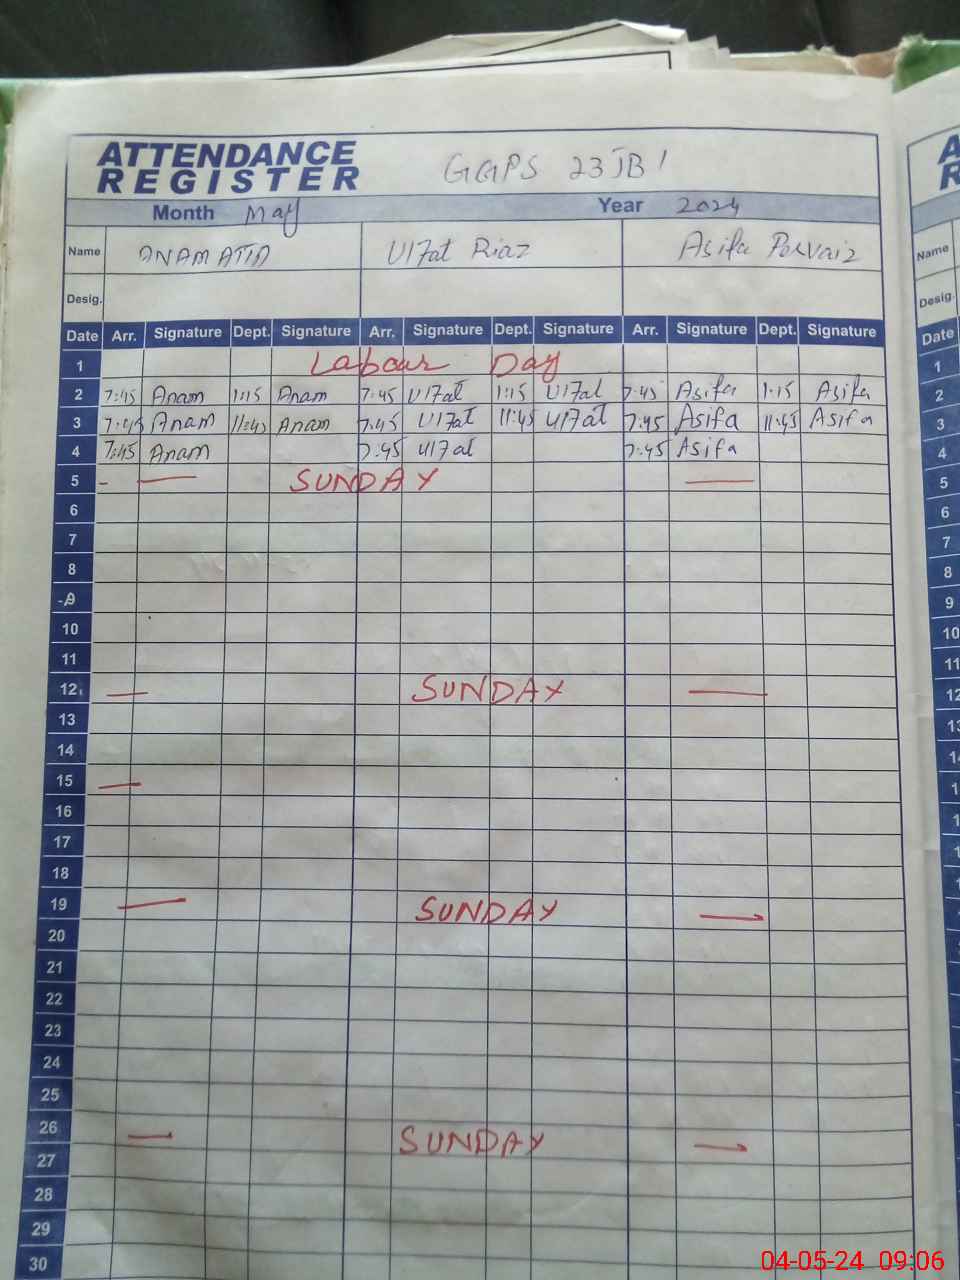 ATTENDANCE
REGISTER
GGPS 23JB1
Month May Year 2024
Name ANAM ATIA Ulfat Riaz Asifa Pervaiz
Desig.
Date Arr. Signature Dept. Signature Arr. Signature Dept. Signature Arr. Signature Dept. Signature
1 Labour Day
2 7:45 Anam 1:15 Anam 7:45 Ulfat 1:15 Ulfat 7:45 Asifa 1:15 Asifa
3 7:45 Anam 11:45 Anam 7:45 Ulfat 11:45 Ulfat 7:45 Asifa 11:45 Asifa
4 7:45 Anam 7:45 Ulfat 7:45 Asifa
5 - — SUNDAY —
6
7
8
9
10
11
12 — SUNDAY —
13
14
15 —
16
17
18
19 — SUNDAY —
20
21
22
23
24
25
26 — SUNDAY —
27
28
29
30
A
R
Name
Desig.
Date
1
2
3
4
5
6
7
8
9
10
11
12
04-05-24 09:06